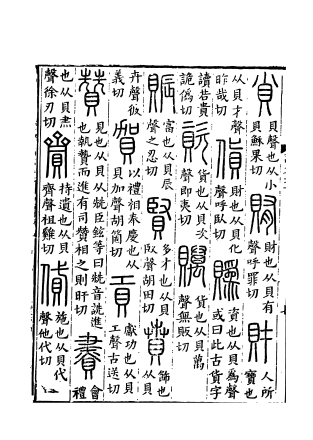 𧴪貝聲也从小貝穌果切賄財也从貝有聲呼罪切財人所寶也
从貝才聲昨哉切貨財也从貝化聲呼臥切䞈資也从貝為聲或曰此古貨字
讀若貴詭偽切資貨也从貝次聲即夷切贎貨也从貝萬聲無販切
賑富也从貝辰聲之忍切賢多才也从貝臤聲胡田切賁飾也从貝
卉聲彼義切賀以禮相奉慶也从貝加聲胡箇切貢獻功也从貝工聲古送切
贊見也从貝从兟臣鉉等曰兟音詵進也執贄而進有司贊相之則旰切賮會禮
也从貝㶳聲徐刃切齎持遺也从貝齊聲祖雞切貸施也从貝代聲他代切